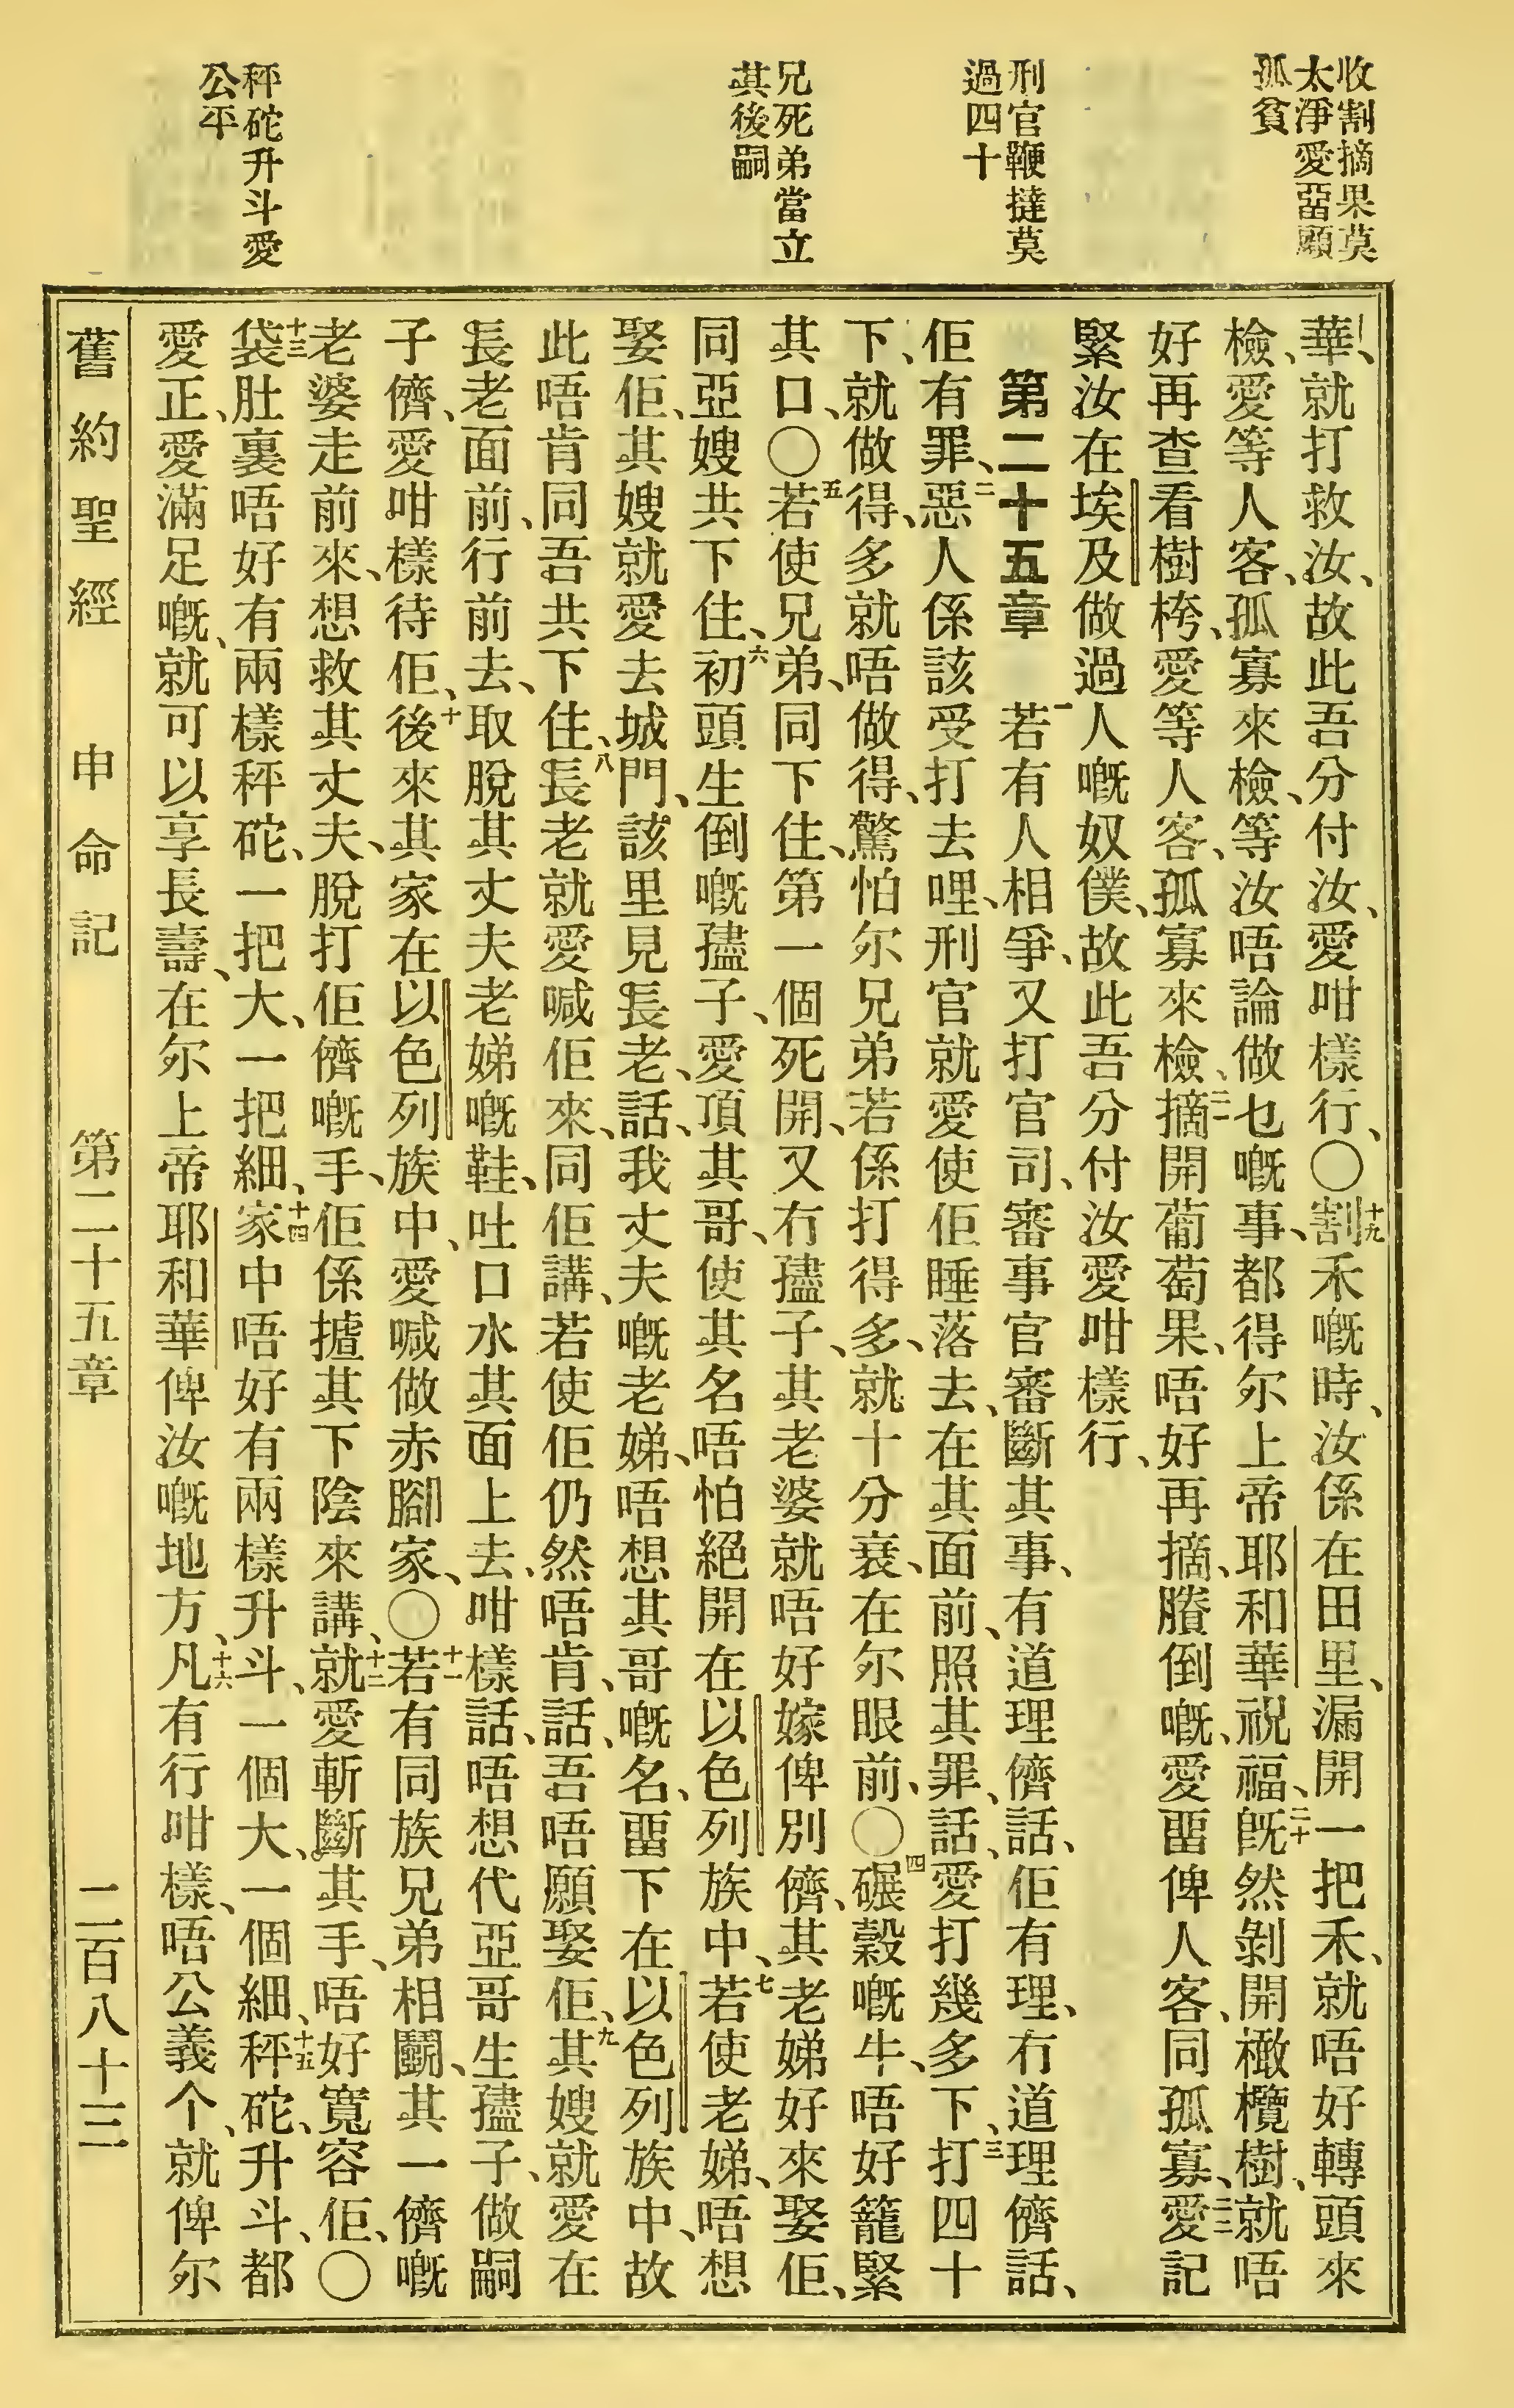 收割摘果莫
太淨愛畱顧
孤貧
刑官鞭撻莫
過四十
兄死弟當立
其後嗣
秤砣升斗愛
公平
華、就打救汝、故此吾分付汝、愛咁樣行、〇十九割禾嘅時、汝係在田里、漏開一把禾、就唔好轉頭來
檢、愛等人客、孤寡來檢、等汝唔論做乜嘅事、都得尔上帝耶和華祝福、二十旣然剝開橄欖樹、就唔
好再查看樹桍、愛等人客、孤寡來檢、二一摘開葡萄果、唔好再摘、賸倒嘅、愛畱俾人客、同孤寡、二二愛記
緊汝在埃及做過人嘅奴僕、故此吾分付汝愛咁樣行、
第二十五章　一若有人相爭、又打官司、審事官審斷其事、有道理儕話、佢有理、冇道理儕話、
佢有罪、二惡人係該受打去哩、刑官就愛使佢睡落去、在其面前、照其罪、話、愛打幾多下、三打四十
下、就做得、多就唔做得、驚怕尔兄弟若係打得多、就十分衰、在尔眼前、〇四碾穀嘅牛、唔好籠緊
其口、〇五若使兄弟、同下住、第一個死開、又冇孻子、其老婆就唔好嫁俾別儕、其老娣好來娶佢、
同亞嫂共下住、六初頭生倒嘅孻子、愛頂其哥、使其名唔怕絕開在以色列族中、七若使老娣、唔想
娶佢、其嫂就愛去城門、該里見長老、話、我丈夫嘅老娣、唔想其哥嘅名、畱下在以色列族中、故
此唔肯同吾共下住、八長老就愛喊佢來、同佢講、若使佢仍然唔肯、話、吾唔願娶佢、九其嫂就愛在
長老面前、行前去、取脫其丈夫老娣嘅鞋、吐口水其面上去、咁樣話、唔想代亞哥生孻子、做嗣
子儕、愛咁樣待佢、十後來其家在以色列族中、愛喊做赤腳家、〇十一若有同族兄弟相鬬、其一儕嘅
老婆走前來、想救其丈夫、脫打佢儕嘅手、佢係摣其下陰來講、十二就愛斬斷其手、唔好寬容佢、〇
十三袋肚裏唔好有兩樣秤砣、一把大、一把細、十四家中唔好有兩樣升斗、一個大、一個細、十五秤砣、升斗、都
愛正、愛滿足嘅、就可以享長壽、在尔上帝耶和華俾汝嘅地方、十六凡有行咁樣、唔公義个、就俾尔
舊約聖經　申命記　第二十五章　二百八十三